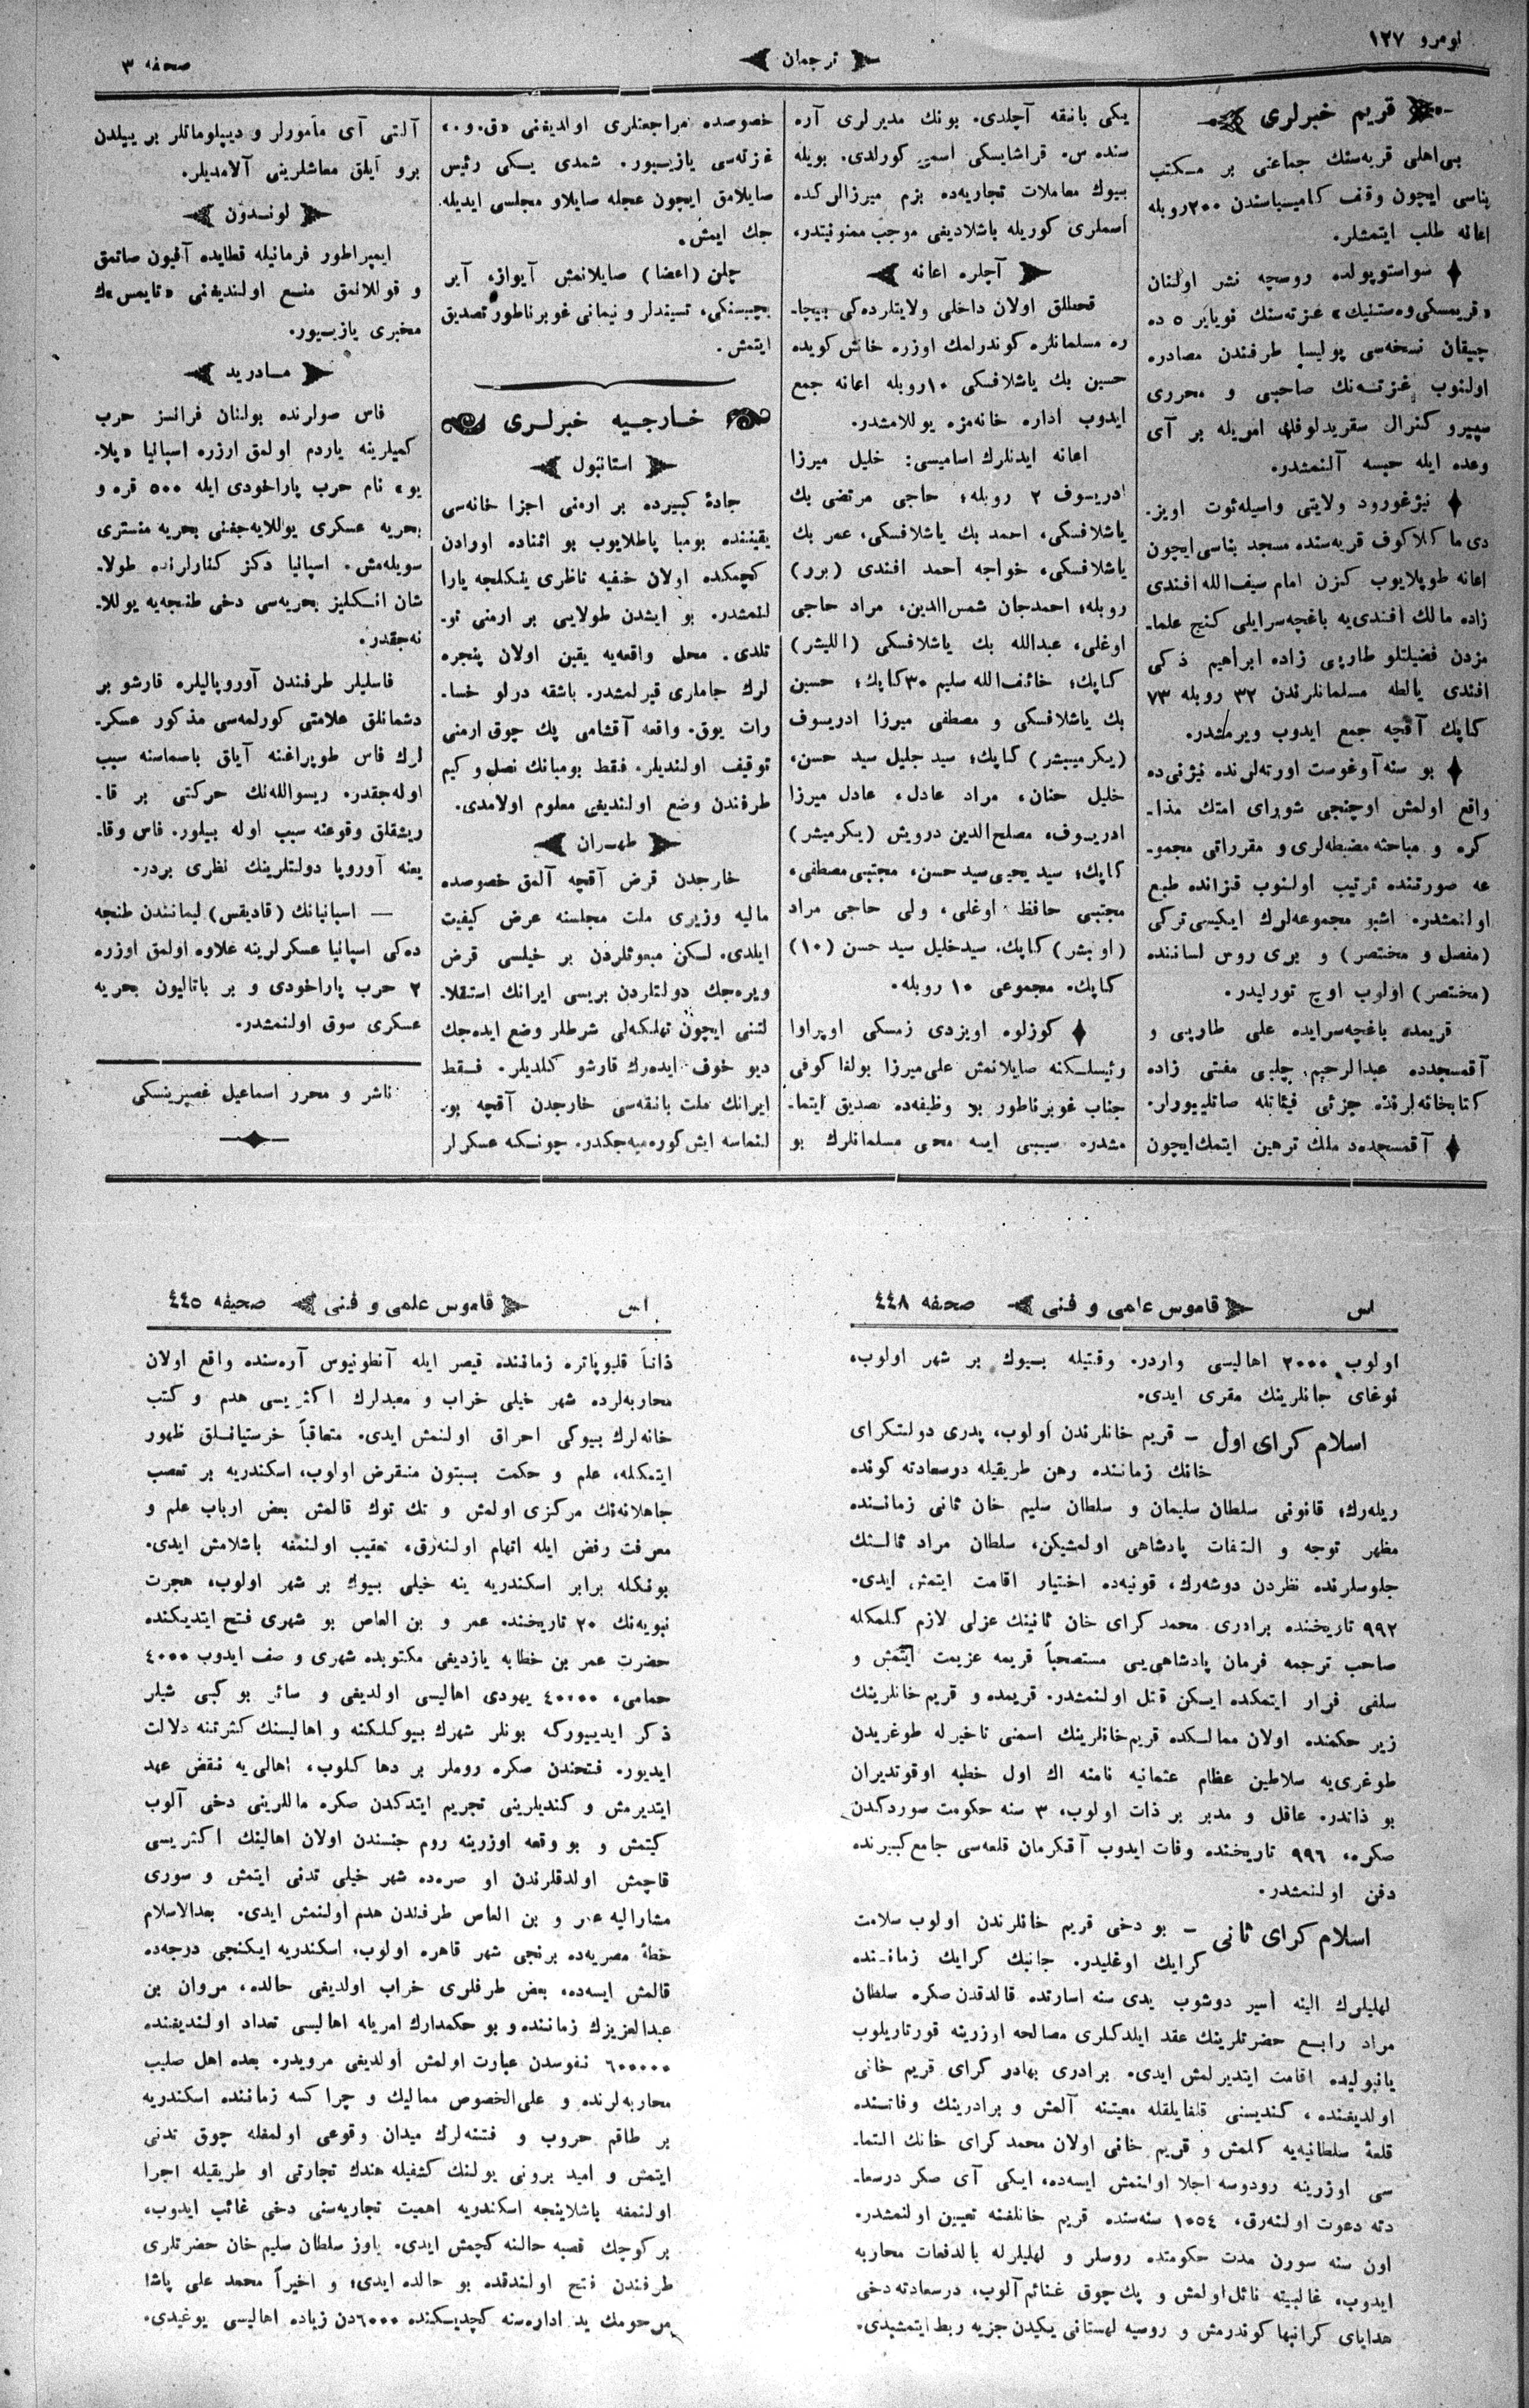 نومرو ١٢٧
ترجمان
صحفه ٣
قريم خبرلری
بی‌اهلی قريه‌سنك جماعتی بر مكتب
بناسی ايچون وقف كاميسياسندن ٢٠٠ روبله
اعانه طلب ايتمشلر.
سواستوپولده روسچه نشر اولنان
«قريمسكی وه‌ستنيك» غزته‌سنك نويابر ٥ ده
چيقان نسخه‌سی پوليسا طرفندن مصادره
اولنوب غزته‌نك صاحبی و محرری
سپيرو كنرال سقريدلوفك امريله بر آی
وعده ايله حبسه آلنمشدر.
نيژغورود ولايتی واسيله‌ئوت اويز-
دی ما كلاكوف قريه‌سنده مسجد بناسی ايچون
اعانه طوپلايوب كزن امام سيف‌الله افندی
زاده مالك افندی‌يه باغچه‌سرايلی كنج علما-
مزدن فضيلتلو طارپی زاده ابراهيم ذكی
افندی يالطه مسلمانلرندن ٣٢ روبله ٧٣
كاپك آقچه جمع ايدوب ويرمشدر.
بو سنه آوغوست اورته‌لرنده نيژنی‌ده
واقع اولمش اوچنجی شورای امتك مذا-
كره و مباحثه مضبطه‌لری و مقرراتی مجمو-
عه صورتنده ترتيب اولنوب قزانده طبع
اولنمشدر. اشبو مجموعه‌لرك ايكيسی تركی
(مفصل و مختصر) و بری روس لساننده
(مختصر) اولوب اوچ تورليدر.
قريمده باغچه‌سرايده علی طارپی و
آقمسجدده عبدالرحيم چلبی مفتی زاده
كتابخانه‌لرنده جزئی فيئاتله صاتليورلر.
آقمسجدده ملك ترهين ايتمك ايچون
يكی بانقه آچلدی. بونك مديرلری آره
سنده س. قراشايسكی اسمی كورلدی. بويله
بيوك معاملات تجاريه‌ده بزم ميرزالركده
اسملری كوريله باشلاديغی موجب ممنونيتدر.
آچلره اعانه
قحطلق اولان داخلی ولايتلرده‌كی بيچا-
ره مسلمانلره كوندرلمك اوزره خاش كويده
حسين بك ياشلافسكی ١٠ روبله اعانه جمع
ايدوب اداره خانه‌مزه يوللامشدر.
اعانه ايدنلرك اساميسی: خليل ميرزا
ادريسوف ٢ روبله؛ حاجی مرتضی بك
ياشلافسكی، احمد بك ياشلافسكی، عمر بك
ياشلافسكی، خواجه احمد افندی (برر)
روبله؛ احمدجان شمس‌الدين، مراد حاجی
اوغلی، عبدالله بك ياشلافسكی (الليشر)
كاپك؛ خائف‌الله سليم ٣٠ كاپك؛ حسين
بك ياشلافسكی و مصطفی ميرزا ادريسوف
(يكرميبشر) كاپك؛ سيد جليل سيد حسن،
خليل حنان، مراد عادل، عادل ميرزا
ادريسوف، مصلح‌الدين درويش (يكرميشر)
كاپك؛ سيد يحيی سيد حسن، مجتبی مصطفی،
مجتبی حافظ اوغلی، ولی حاجی مراد
(اونبشر) كاپك. سيد خليل سيد حسن (١٠)
كاپك. مجموعی ١٠ روبله.
كوزلوه اويزدی زمسكی اوپراوا
رئيسلكنه صايلانمش علی ميرزا بولغاكوفی
جناب غوبرناطور بو وظيفه‌ده تصديق ايتما-
مشدر. سببی ايسه محی مسلمانلرك بو
خصوصده مراجعتلری اولديغنی «ق. و.»
غزته‌سی يازيسيور. شمدی يسكی رئيس
صايلامق ايچون عجله صايلاو مجلسی ايديله-
جك ايمش.
چلن (اعضا) صايلانمش آيواز، آير
بچيسنكی، تسيندلر و نيمانی غوبرناطور تصديق
ايتمش.
خارجيه خبرلری
استانبول
جادهٔ كبيرده بر ارمنی اجزا خانه‌سی
يقيننده بومبا پاطلايوب بو اثناده اورادن
كچمكده اولان خفيه ناظری ينكلجه يارا
لنمشدر. بو ايشدن طولايی بر ارمنی تو-
تلدی. محل واقعه‌يه يقين اولان پنجره
لرك جاملری قيرلمشدر. باشقه درلو خسا-
رات يوق. واقعه آقشامی پك چوق ارمنی
توقيف اولنديلر. فقط بومبانك نصل و كيم
طرفندن وضع اولنديغی معلوم اولامدی.
طهران
خارجدن قرض آقچه آلمق خصوصده
ماليه وزيری ملت مجلسنه عرض كيفيت
ايلدی. لسكن مبعوثلردن بر خيلسی قرض
ويره‌جك دولتلردن بريسی ايرانك استقلا-
لتنی ايچون تهلكه‌لی شرطلر وضع ايده‌جك
ديو خوف ايده‌رك قارشو كلديلر. فقط
ايرانك ملت بانقه‌سی خارجدن آقچه بو-
لنماسه ايش كوره‌ميه‌جكدر. چونكه عسكرلر
آلتی آی مأمورلر و ديپلوماتلر بر ييلدن
برو آيلق معاشلرينی آلامديلر.
لوندون
ايمپراطور فرمانيله قطايده آفيون صاتمق
و قوللانمق منع اولنديغنی «تايمس»ك
مخبری يازيسيور.
مادريد
فاس صولرنده بولنان فرانسز حرب
كميلرينه ياردم اولمق اوزره اسپانيا «پلا-
يو» نام حرب پاراخودی ايله ٥٠٠ قره و
بحريه عسكری يوللايه‌جغنی بحريه منستری
سويله‌مش. اسپانيا دكز كنارلرنده طولا-
شان انكليز بحريه‌سی دخی طنجه‌يه يوللا-
نه‌جقدر.
فاسليلر طرفندن آوروپاليلره قارشو بر
دشمانلق علامتی كورلمه‌سی مذكور عسكر-
لرك فاس طوپراغنه آياق باسماسنه سبب
اوله‌جقدر. ريسوالله‌نك حركتی بر قا-
ريشقلق وقوعنه سبب اوله بيلور. فاس وقا-
يعنه آوروپا دولتلرينك نظری بردر.
— اسپانيانك (قاديقس) ليمانندن طنجه
ده‌كی اسپانيا عسكرلرينه علاوه اولمق اوزره
٢ حرب پاراخودی و بر باتاليون بحريه
عسكری سوق اولنمشدر.
ناشر و محرر اسماعيل غصپرينسكی
اس
قاموس علمی و فنی
صحفه ٤٤٨
اولوب ٢٠٠٠ اهاليسی واردر. وقتيله بيوك بر شهر اولوب،
نوغای خانلرينك مقری ايدی.
اسلام كرای اول – قريم خانلرندن اولوب، پدری دولتكرای
خانك زماننده رهن طريقيله درسعادته كونده
ريله‌رك؛ قانونی سلطان سليمان و سلطان سليم خان ثانی زماننده
مظهر توجه و التفات پادشاهی اولمشيكن، سلطان مراد ثالثك
جلوسلرنده نظردن دوشه‌رك، قونيه‌ده اختيار اقامت ايتمش ايدی.
٩٩٢ تاريخنده برادری محمد كرای خان ثانينك عزلی لازم كلمكله
صاحب ترجمه فرمان پادشاهی‌يی مستصحباً قريمه عزيمت ايتمش و
سلفی فرار ايتمكده ايسكن قتل اولنمشدر. قريمده و قريم خانلرينك
زير حكمنده اولان ممالكده قريم خانلرينك اسمنی تاخيرله طوغريدن
طوغری‌يه سلاطين عظام عثمانيه نامنه اك اول خطبه اوقونديران
بو ذاتدر. عاقل و مدبر بر ذات اولوب، ٣ سنه حكومت سوردكدن
صكره، ٩٩٦ تاريخنده وفات ايدوب آقكرمان قلعه‌سی جامع كبيرنده
دفن اولنمشدر.
اسلام كرای ثانی – بو دخی قريم خانلرندن اولوب سلامت
كرايك اوغليدر. جانبك كرايك زماننده
لهليلرك الينه أسير دوشوب يدی سنه اسارتده قالدقدن صكره سلطان
مراد رابع حضرتلرينك عقد ايلدكلری مصالحه اوزرينه قورتاريلوب
يانبوليده اقامت ايتديرلمش ايدی. برادری بهادر كرای قريم خانی
اولديغنده، كنديسنی قلغايلقله معيتنه آلمش و برادرينك وفاتنده
قلعهٔ سلطانيه‌يه كلمش و قريم خانی اولان محمد كرای خانك التما-
سی اوزرينه رودوسه اجلا اولنمش ايسه‌ده، ايكی آی صكر درسعا-
دته دعوت اولنه‌رق، ١٠٥٤ سنه‌سنده قريم خانلغنه تعيين اولنمشدر.
اون سنه سورن مدت حكومتده روسلر و لهليلرله بالدفعات محاربه
ايدوب، غالبيته نائل اولمش و پك چوق غنائم آلوب، درسعادته دخی
هدايای كرانبها كوندرمش و روسيه لهستانی يكيدن جزيه ربط ايتمشيدی.
اس
قاموس علمی و فنی
صحيفه ٤٤٥
ذاتاً قليوپاتره زماننده قيصر ايله آنطونيوس آره‌سنده واقع اولان
محاربه‌لرده شهر خيلی خراب و معبدلرك اكثريسی هدم و كتب
خانه‌لرك بيوكی احراق اولنمش ايدی. متعاقباً خرستيانلق ظهور
ايتمكله، علم و حكمت بسبتون منقرض اولوب، اسكندريه بر تعصب
جاهلانه‌نك مركزی اولمش و تك توك قالمش بعض ارباب علم و
معرفت رفض ايله اتهام اولنه‌رق، تعقيب اولنمغه باشلامش ايدی.
بونكله برابر اسكندريه ينه خيلی بيوك بر شهر اولوب، هجرت
نبويه‌نك ٢٠ تاريخنده عمر و بن العاص بو شهری فتح ايتديكنده
حضرت عمر بن خطابه يازديغی مكتوبده شهری و صف ايدوب ٤٠٠٠
حمامی، ٤٠٠٠٠ يهودی اهاليسی اولديغی و سائر بو كبی شيلر
ذكر ايدييوركه بونلر شهرك بيوكلكنه و اهاليسنك كثرتنه دلالت
ايديور. فتحندن صكره روملر بر دها كلوب، اهالی‌يه نقض عهد
ايتديرمش و كنديلرينی تجريم ايتدكدن صكره ماللرينی دخی آلوب
كيتمش و بو وقعه اوزرينه روم جنسندن اولان اهالينك اكثريسی
قاچمش اولدقلرندن او صره‌ده شهر خيلی تدنی ايتمش و سوری
مشاراليه عمر و بن العاص طرفندن هدم اولنمش ايدی. بعدالاسلام
خطهٔ مصريه‌ده برنجی شهر قاهره اولوب، اسكندريه ايكنجی درجه‌ده
قالمش ايسه‌ده، بعض طرفلری خراب اولديغی حالده، مروان بن
عبدالعزيزك زماننده و بو حكمدارك امريله اهاليسی تعداد اولنديغنده
٦٠٠٠٠٠ نفوسدن عبارت اولمش اولديغی مرويدر. بعده اهل صليب
محاربه‌لرنده و علی‌الخصوص مماليك و چراكسه زماننده اسكندريه
بر طاقم حروب و فتنه‌لرك ميدان وقوعی اولمغله چوق تدنی
ايتمش و اميد برونی يولنك كشفيله هندك تجارتی او طريقيله اجرا
اولنمغه باشلاينجه اسكندريه اهميت تجاريه‌سنی دخی غائب ايدوب،
بر كوچك قصبه حالنه كچمش ايدی. ياوز سلطان سليم خان حضرتلری
طرفندن فتح اولندقده بو حالده ايدی؛ و اخيراً محمد علی پاشا
مرحومك يد اداره‌سنه كچديكنده ٦٠٠٠دن زياده اهاليسی يوغيدی.